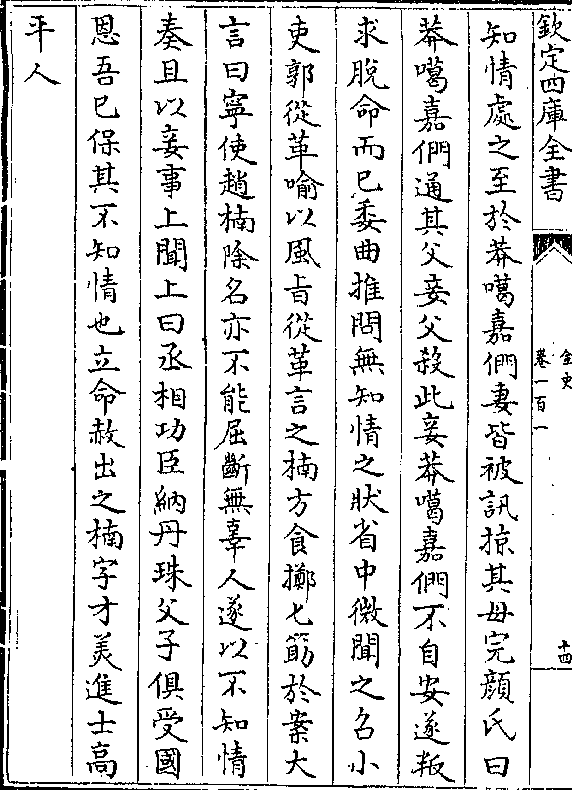 欽定四庫全書
金史
卷一百一
十四
知情處之至於莽噶嘉們妻皆被訊掠其母完顏氏曰
莽噶嘉們通其父妾父殺此妾莽噶嘉們不自安遂叛
求脫命而已委曲推問無知情之狀省中微聞之召小
吏郭從革喻以風旨從革言之楠方食擲匕筯於案大
言曰寧使趙楠除名亦不能屈斷無辜人遂以不知情
奏且以妾事上聞上曰丞相功臣納丹珠父子俱受國
恩吾已保其不知情也立命赦出之楠字才美進士高
平人